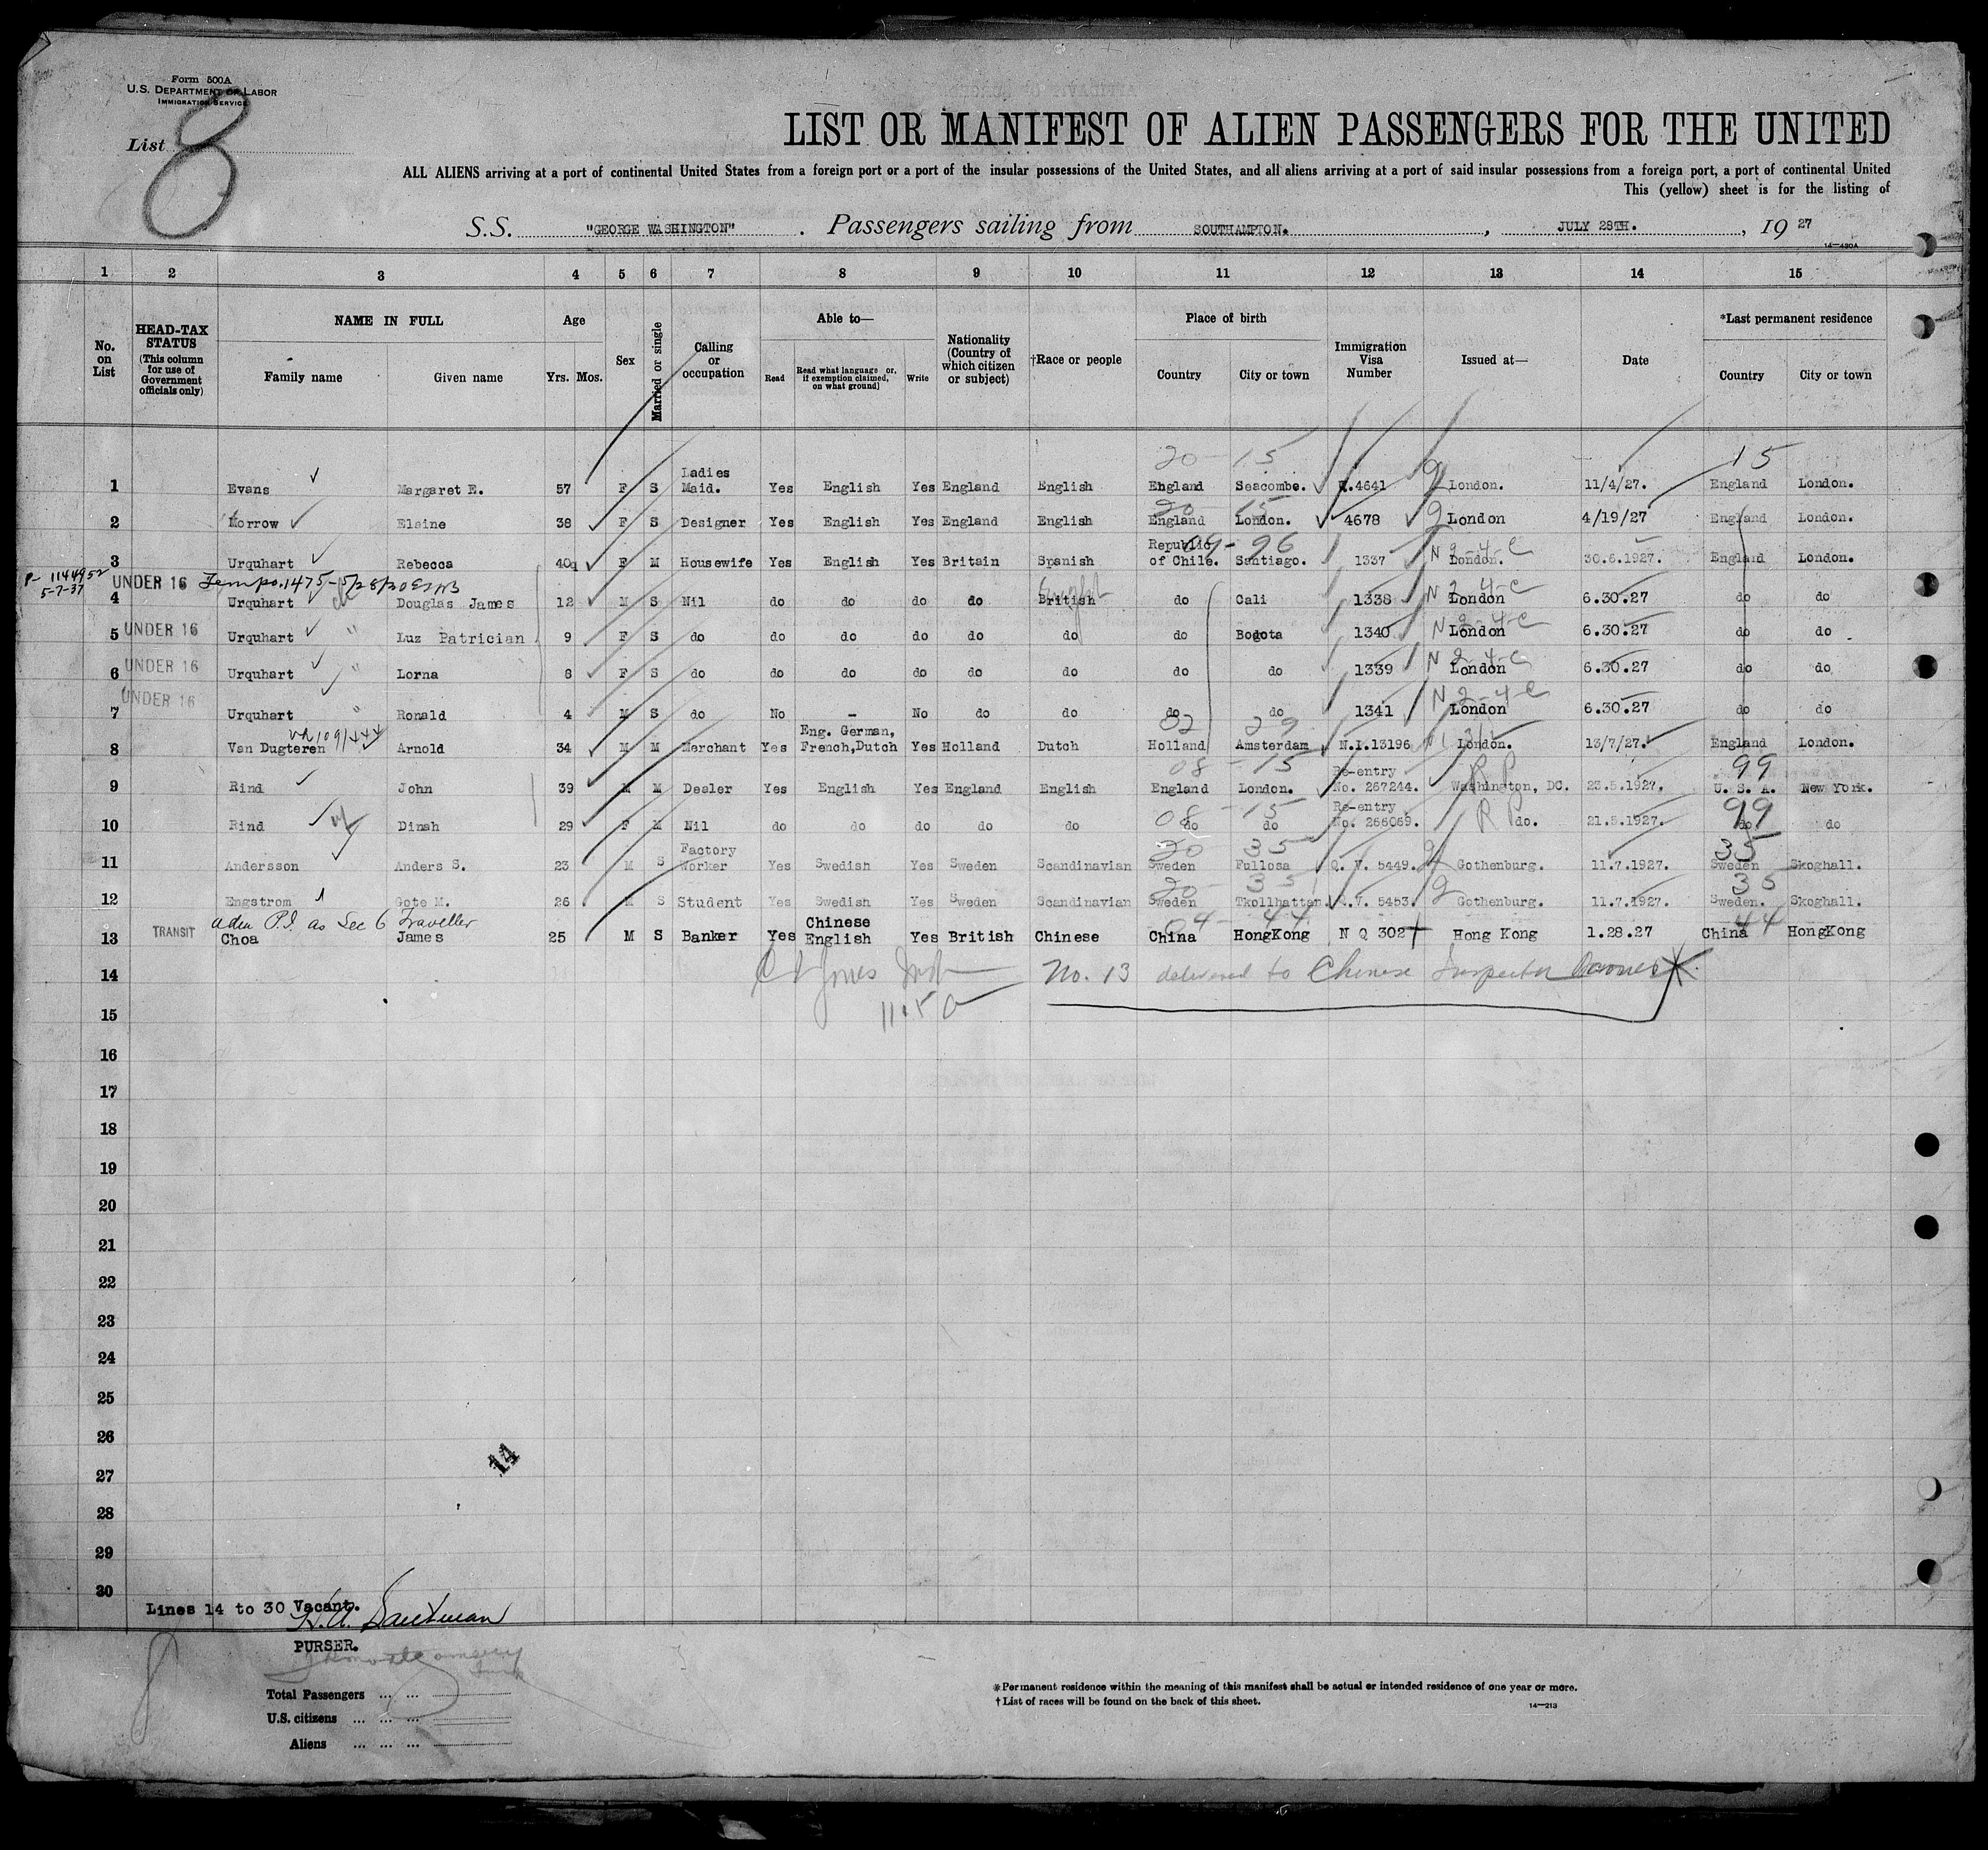 Form 500A
U.S. DEPARTMENT OF LABOR
IMMIGRATION SERVICE
List 8
LIST OR MANIFEST OF ALIEN PASSENGERS FOR THE UNITED
ALL ALIENS arriving at a port of continental United States from a foreign port or a port of the insular possessions of the United States, and all aliens arriving at a port of said insular possessions from a foreign port, a port of continental United
This (yellow) sheet is for the listing of
S.S. "GEORGE WASHINGTON" . Passengers sailing from SOUTHAMPTON. , JULY 28TH. , 19 27
14—430A
1 2 3 4 5 6 7 8 9 10 11 12 13 14 15
No. on List
HEAD-TAX STATUS (This column for use of Government officials only)
NAME IN FULL
Family name Given name
Age
Yrs. Mos.
Sex
Married or single
Calling or occupation
Able to—
Read Read what language or, if exemption claimed, on what ground) Write
Nationality (Country of which citizen or subject)
†Race or people
Place of birth
Country City or town
Immigration Visa Number
Issued at—
Date
*Last permanent residence
Country City or town
20 - 15 15
1 Evans Margaret E. 57 F S Ladies Maid. Yes English Yes England English England Seacombe. Q.4641 London. 11/4/27. England London.
20 15
2 Morrow Elaine 38 F S Designer Yes English Yes England English England London. 4678 London 4/19/27 England London.
09 - 96
3 Urquhart Rebecca 40 F M Housewife Yes English Yes Britain Spanish Republic of Chile. Santiago. 1337 N 2-4-C London. 30.6.1927. England London.
P- 114495
5-7-37
UNDER 16
4 Urquhart Douglas James 12 M S Nil do do do do British do Cali 1338 N 2-4-C London 6.30.27 do do
UNDER 16
5 Urquhart " Luz Patrician 9 F S do do do do do do do Bogota 1340 N 2-4-C London 6.30.27 do do
UNDER 16
6 Urquhart " Lorna 8 F S do do do do do do do do 1339 N 2-4-C London 6.30.27 do do
UNDER 16
7 Urquhart " Ronald 4 M S do No - No do do do do 1341 N 2-4-C London 6.30.27 do do
02 29
8 Van Dugteren Arnold 34 M M Merchant Yes Eng. German, French,Dutch Yes Holland Dutch Holland Amsterdam N.I.13196 London. 13/7/27. England London.
08 - 15 99
9 Rind John 39 M M Dealer Yes English Yes England English England London. Re-entry No. 267244. RP Washington, DC. 23.5.1927. U. S. A. New York.
08 15 99
10 Rind Dinah 29 F M Nil do do do do do do do Re-entry No. 266069. RP do. 21.5.1927. do do
20 35 35
11 Andersson Anders S. 23 M S Factory Worker Yes Swedish Yes Sweden Scandinavian Sweden Fullosa Q. V. 5449. Gothenburg. 11.7.1927. Sweden Skoghall.
20 - 35 35
12 Engstrom Gote M. 26 M S Student Yes Swedish Yes Sweden Scandinavian Sweden Tkollhattan Q.V. 5453. Gothenburg. 11.7.1927. Sweden. Skoghall.
Adm P.I. as Sec 6 Traveller
04 - 44 44
13 TRANSIT Choa James 25 M S Banker Yes Chinese English Yes British Chinese China HongKong N Q 302 Hong Kong 1.28.27 China HongKong
14 Jones No. 13 delivered to Chinese Inspector
15
16
17
18
19
20
21
22
23
24
25
26
14
27
28
29
30
Lines 14 to 30 Vacant.
PURSER.
Total Passengers ... ...
U.S. citizens ... ... ...
Aliens ... ... ...
*Permanent residence within the meaning of this manifest shall be actual or intended residence of one year or more.
†List of races will be found on the back of this sheet.
14—213